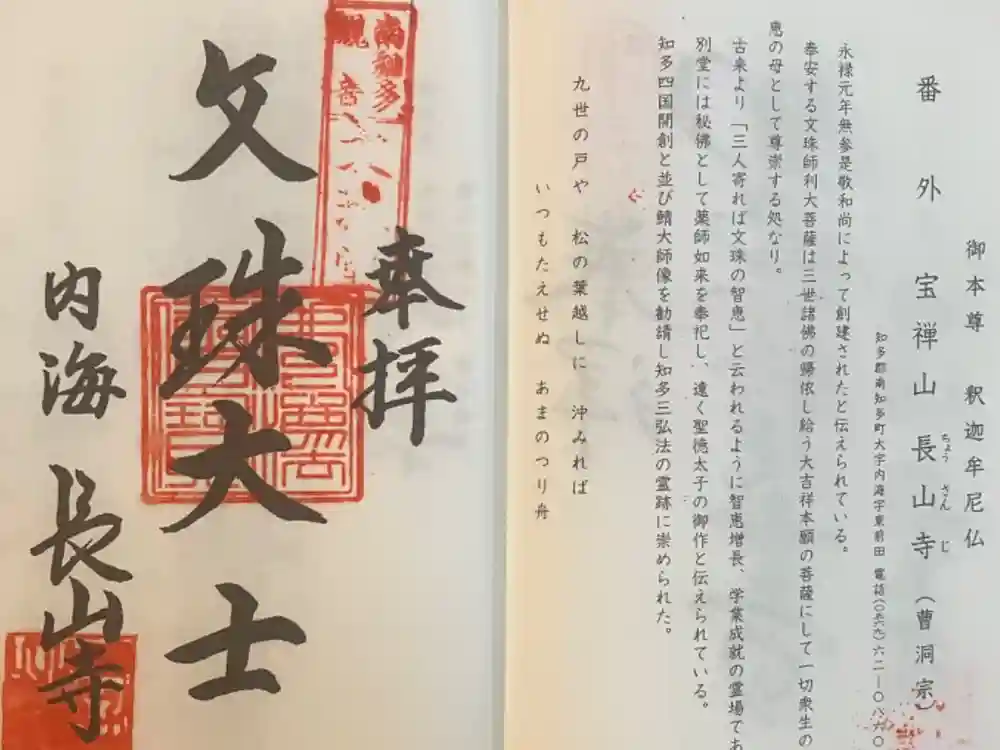 御本尊 釈迦牟尼仏
番外 宝禅山長山寺(曹洞宗)
ちょうさんじ
知多郡南知多町大字内海字東前田 電話(〇五六九)六二一〇八六〇
永禄元年無参是敬和尚によって創建されたと伝えられている。
奉安する文珠師利大菩薩は三世諸佛の帰依し給う大吉祥本願の菩薩にして一切衆生の
恵の母として尊崇する処なり。
古来より「三人寄れば文珠の智恵」と云われるように智恵増長、学業成就の霊場であ
別堂には秘佛として薬師如来を奉祀し、遠く聖徳太子の御作と伝えられている。
知多四国開創と並び鯖大師像を勧請し知多三弘法の霊跡に崇められた。
九世の戸や 松の葉越しに 沖みれば
いつもたえせぬ あまのつり舟
南知多
観音
奉拝
文珠大士
内海 長山寺